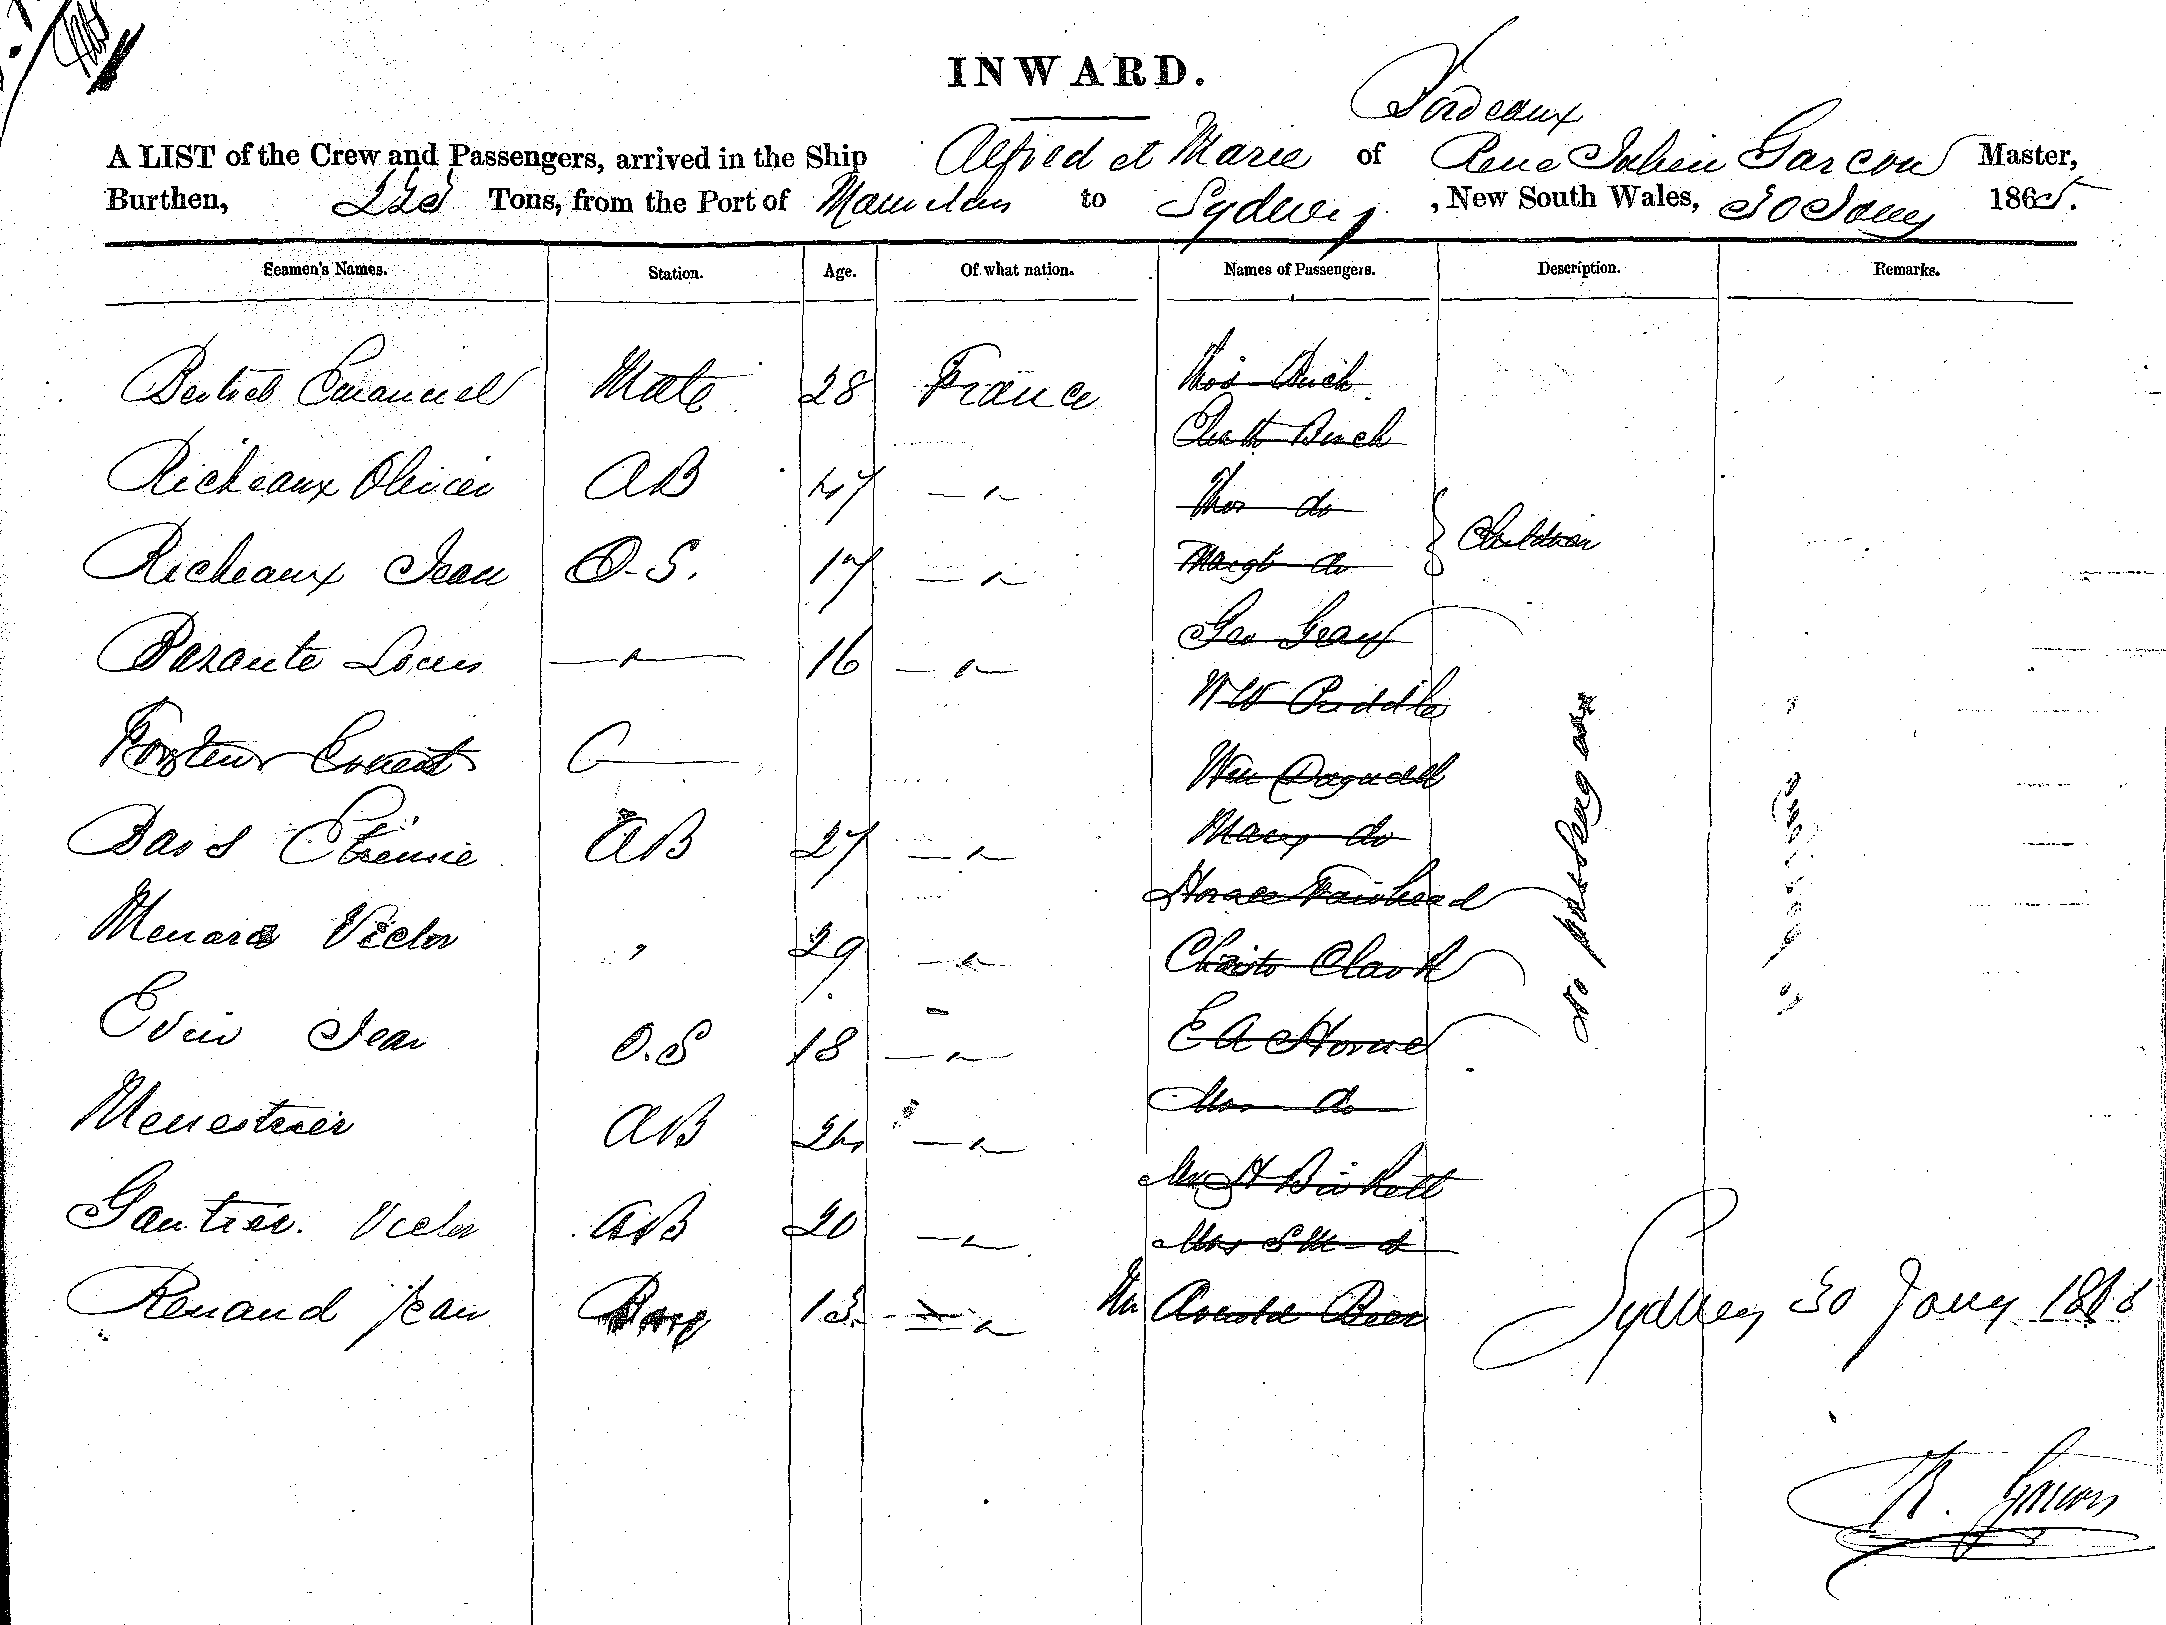 INWARD.
Bordeaux
A LIST of the Crew and Passengers, arrived in the Ship Alfred et Marie of Rene Julien Garcon Master,
Burthen, Tons, from the Port of to Sydney, New South Wales, 30 Jany 1865.
Seamen's Names. Station. Age. Of what nation. Names of Passengers. Description. Remarks.
Emanuel Mate 28 France Thos Birch
Birch
Richeaux Olivier AB 47 — " — Thos do
Children
Richeaux Jean O.S. 17 — " — Margt do
Louis — " — 16 — " — Geo Gray
W W Priddle
Ernest Wm
Etienne AB 27 — " — Mary do
Horace Fairhead
Menard Victor " 29 — " — Christr Clark
Evin Jean O.S 18 — " — E A Horne
Mrs do
Menestrier AB — " —
Mr H Birkett
Gautier. Victor AB 20 — " — Mrs S M d
Renaud Jean Boy 15 — " — Mr Arnold
no passengers
Sydney 30 Jany
R. Garcon